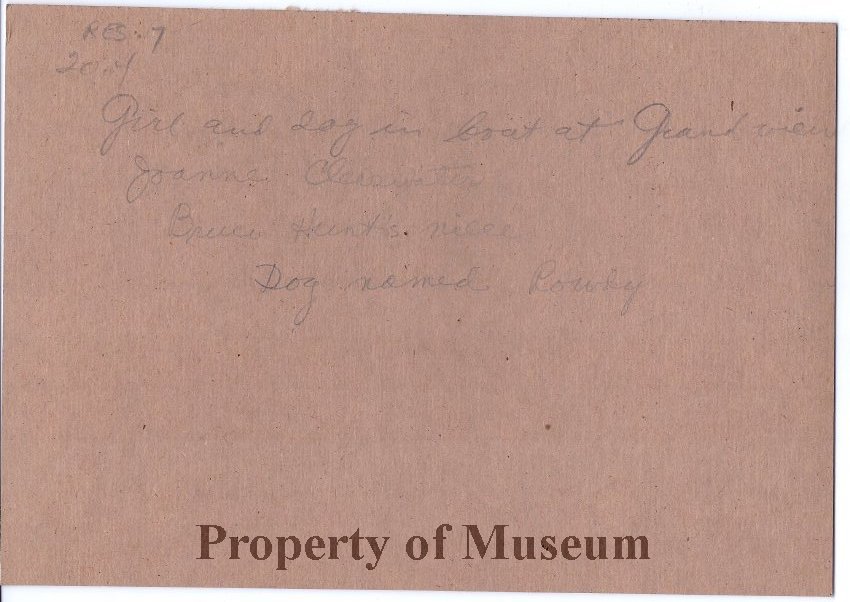 RES. 7
20.4
Girl and dog in boat at Grand view
Joanne Clearwater
Bruce Hunt's niece
Dog named Rowdy
Property of Museum